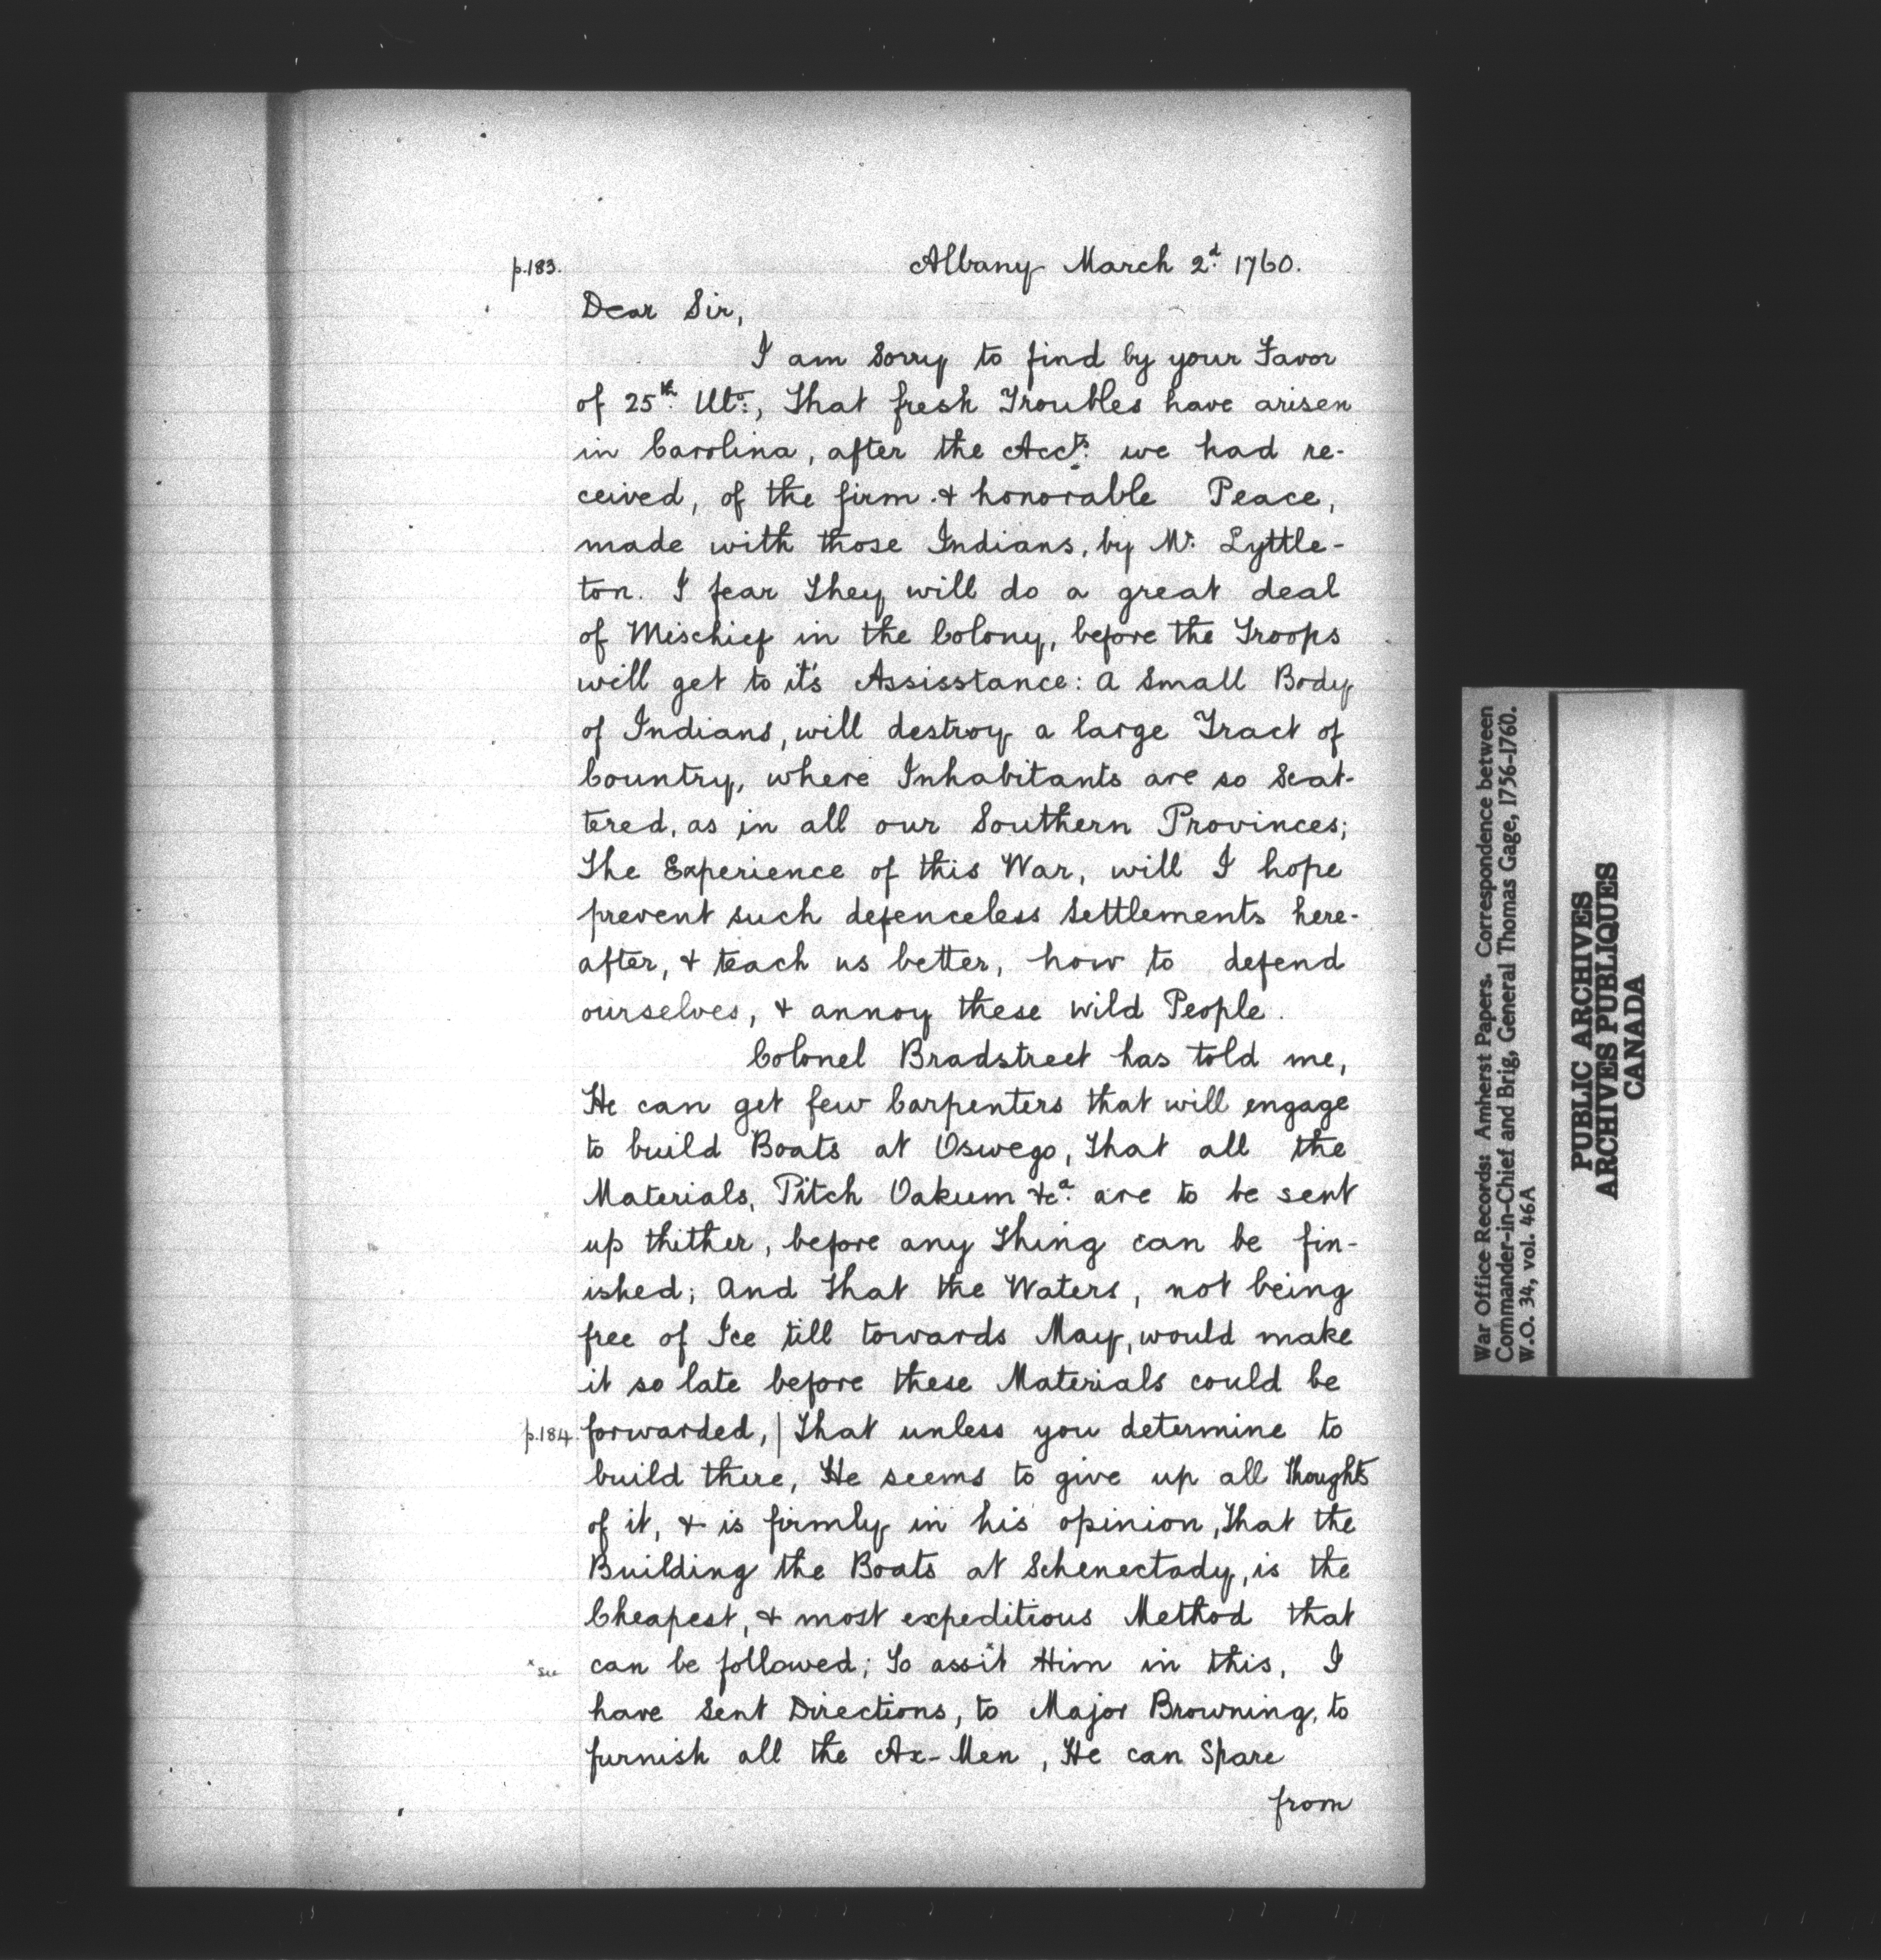 p.183. Albany March 2d. 1760.
Dear Sir,
I am Sorry to find by your Favor
of 25th. Ulto:, That fresh Troubles have arisen
in Carolina, after the Accts. we had re-
ceived, of the firm & honorable Peace,
made with those Indians, by Mr. Lyttle-
ton. I fear They will do a great deal
of Mischief in the Colony, before the Troops
will get to it's Assisstance: A Small Body
of Indians, will destroy a large Tract of
Country, where Inhabitants are so Scat-
tered, as in all our Southern Provinces;
The Experience of this War, will I hope
prevent such defenceless Settlements here-
after, & teach us better, how to defend
ourselves, & annoy these Wild People.
Colonel Bradstreet has told me,
He can get few Carpenters that will engage
to build Boats at Oswego, That all the
Materials, Pitch Oakum &ca. are to be sent
up thither, before any Thing can be fin-
ished; And That the Waters, not being
free of Ice till towards May, would make
it so late before these Materials could be
p.184. forwarded, | That unless you determine to
build there, He seems to give up all Thoughts
of it, & is firmly in his opinion, That the
Building the Boats at Schenectady, is the
Cheapest, & most expeditious Method that
x sic can be followed; To assit x Him in this, I
have Sent Directions, to Major Browning, to
furnish all the Ax-Men, He can Spare
from
War Office Records: Amherst Papers. Correspondence between
Commander-in-Chief and Brig, General Thomas Gage, 1756-1760.
W.O. 34, vol. 46A
PUBLIC ARCHIVES
ARCHIVES PUBLIQUES
CANADA